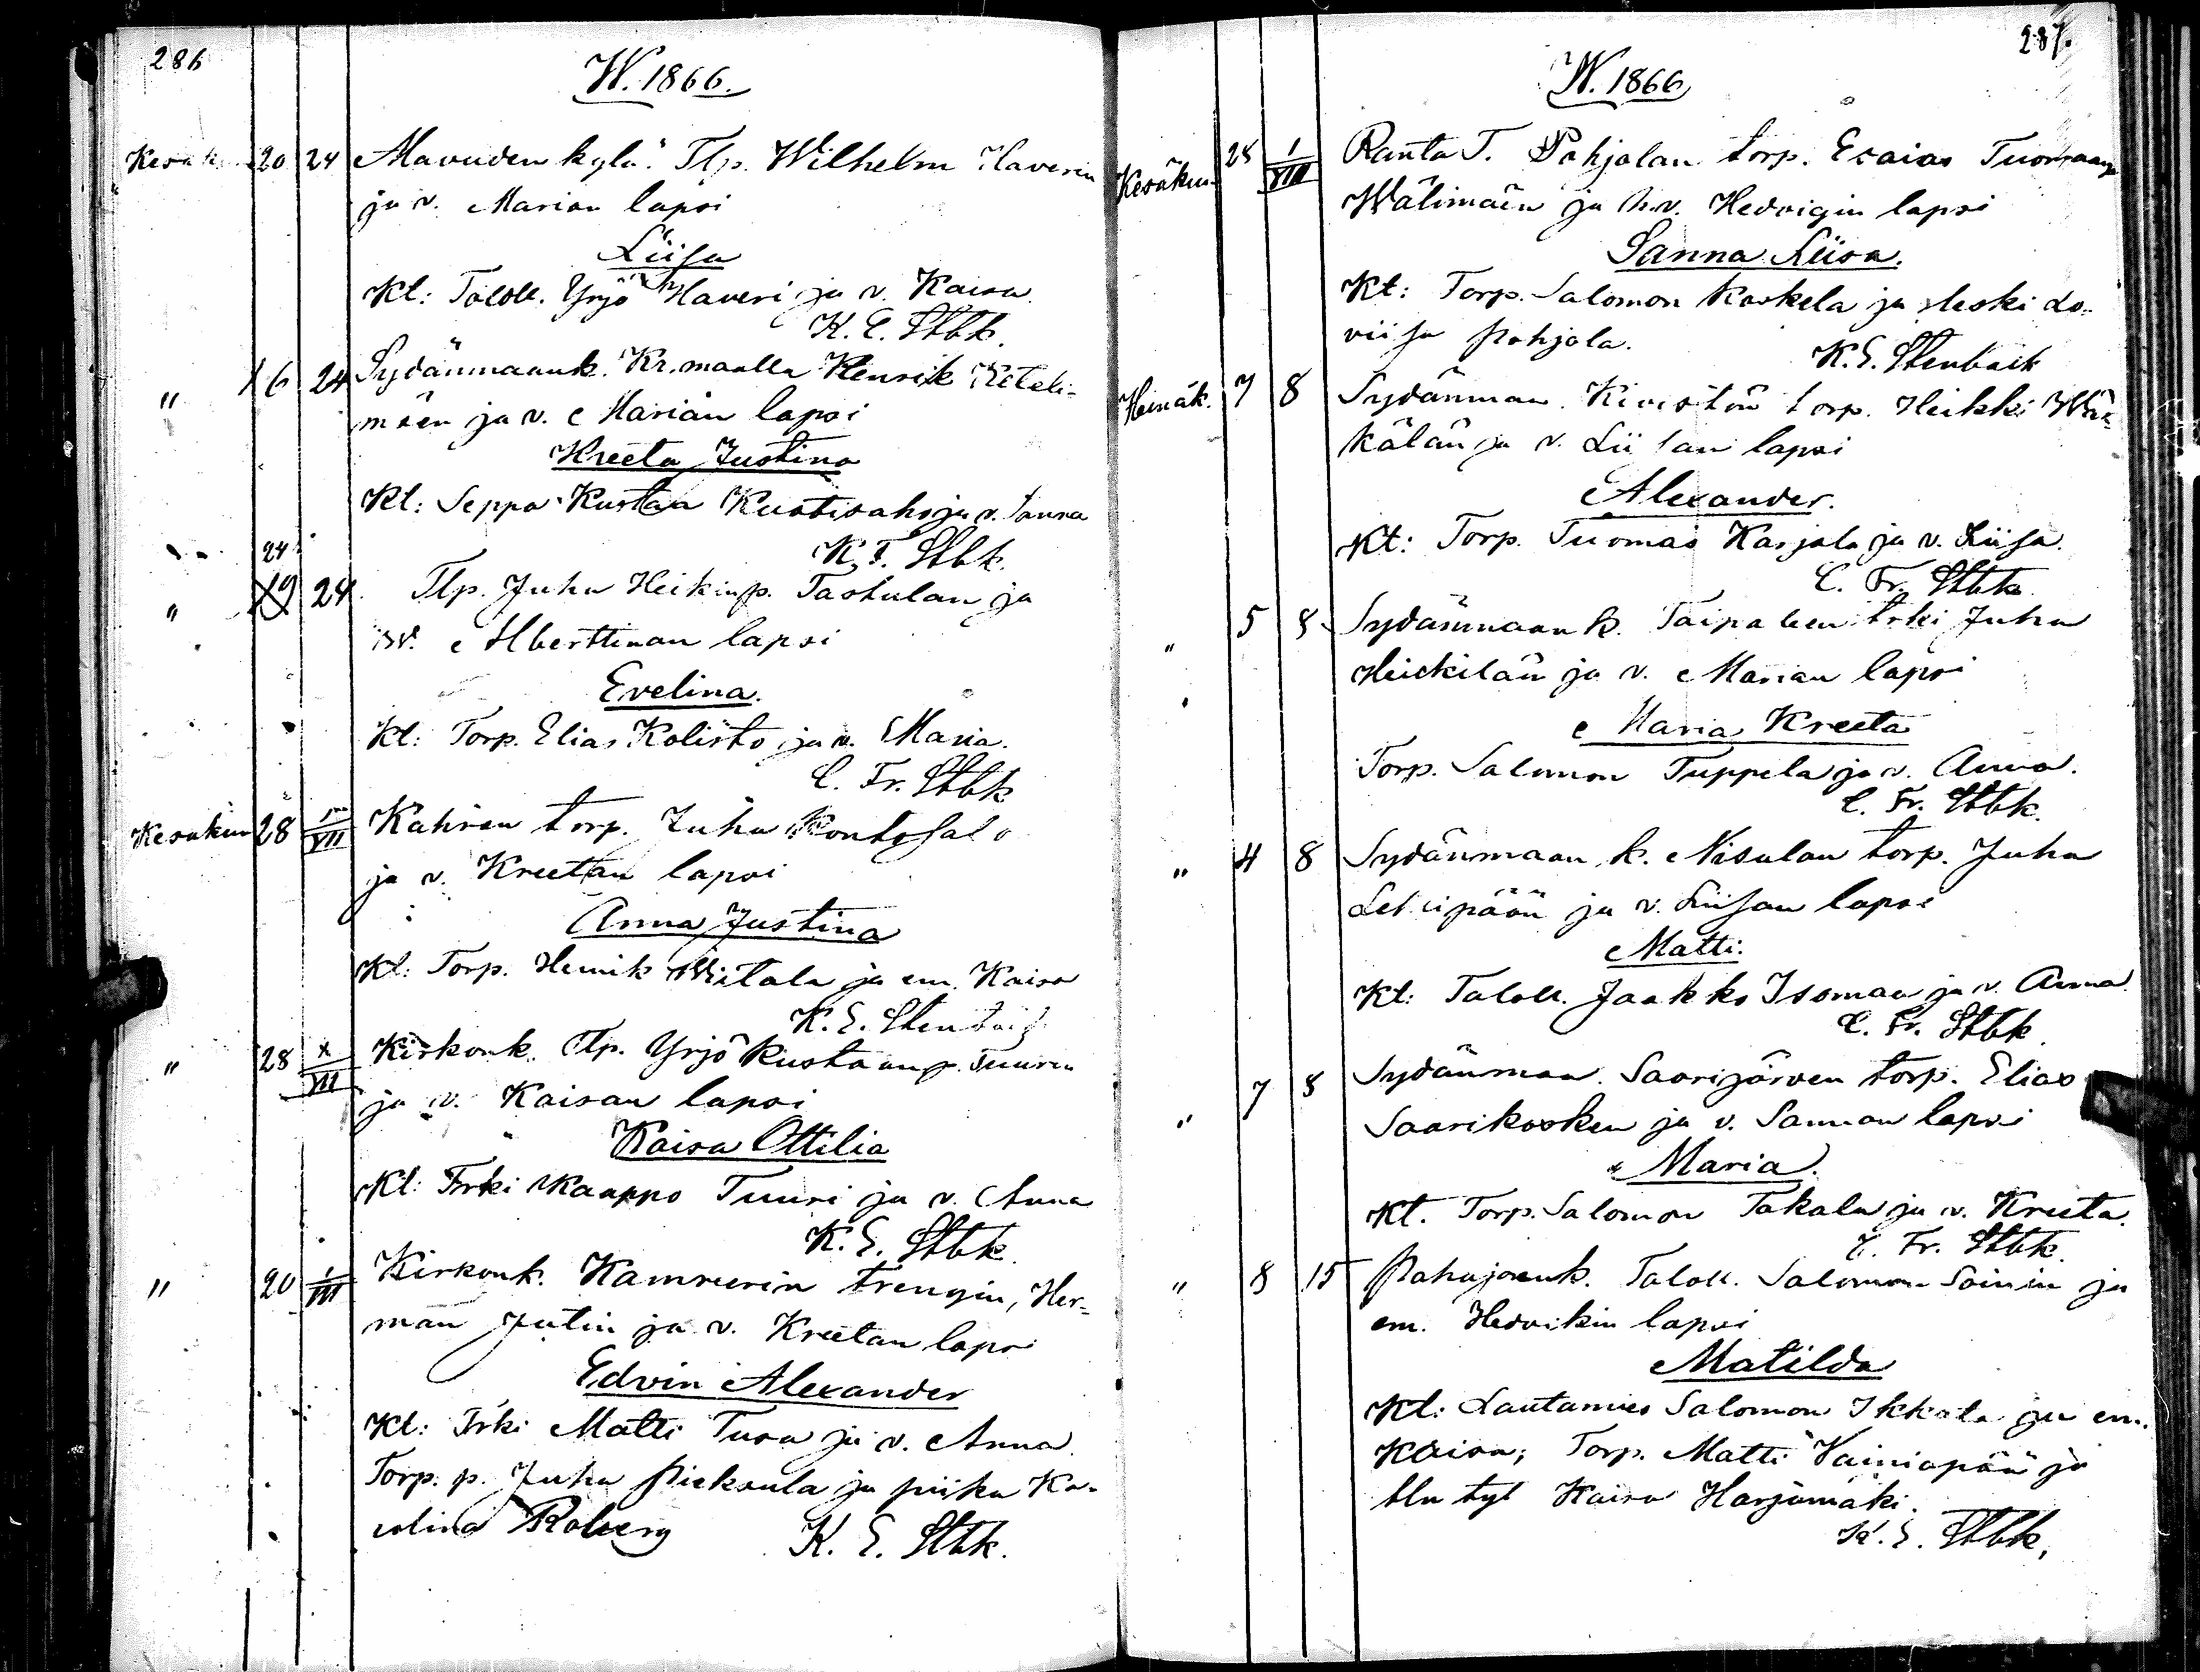 286
W. 1866.
20 24 Mavuden kylä. Tlp. Wilhelm Haverin
ja v. Marian lapsi
Liisa
Kt: Taloll. Yrjö Haveri ja v. Kaisa.
K. E. Stbk.
" 16 24 Sydänmaank. Kr.maalla Henrik
mäen ja v. Marian lapsi
Kreeta Justina
Kt: Seppä Kustaa Kustisaho ja v. Sanna
K. F. Stbk.
24
" 24 Tlp. Juha Heikinp. Tastulan ja
v. Alberttinan lapsi
Evelina.
Kt: Torp. Elias Kolisto ja v. Maria.
C. Fr. Stbk
Kesäkuu 28 VII Kahran torp. Juha Kontosalo
ja v. Kreetan lapsi
Anna Justina
Kt: Torp. Henrik Wiitala ja em. Kaisa
K. E. Stenbäck
" 28 VII Kirkonk. tlp. Yrjö Kustaanp. Tuurin
ja v. Kaisan lapsi
Kaisa Ottilia
Kt: Trki Kaappo Tuuri ja v. Anna
K. E. Stbk.
" 20 Kirkonk. Kamreerin trengin, Her=
man Jutin ja v. Kreetan lapsi
Edvin Alexander
Kt: Trki Matti Tusa ja v. Anna
Torp. p. Juha Pieksula ja piika Ka=
rolina Roberg K. E. Stbk.
287.
W. 1866
Kesäkuu 28 1/VIII Ranta T. Pohjalan torp. Esaias
Wälimäen ja h.v. Hedvigin lapsi
Sanna Liisa.
Kt: Torp. Salomon Koskela ja leski Lo=
viisa Pohjola.
K. E. Stenbäck
Heinäk. 7 8 Sydänmaa. Kivistön torp. Heikki
kälän ja v. Liisan lapsi
Alexander.
Kt: Torp. Tuomas Karjala ja v. Liisa.
C. Fr. Stbk.
" 5 8 Sydänmaan k. Taipaleen trki Juha
Heickilän ja v. Marian lapsi
Maria Kreeta
Torp. Salomon Tuppela ja v. Anna.
C. Fr. Stbk.
" 4 8 Sydänmaan k. Nisulan torp. Juha
ja v. Liisan lapsi
Matti.
Kt: Taloll. Jaakko Isomaa ja v. Anna.
C. Fr. Stbk.
" 7 8 Sydänmaa. Saarijärven torp. Elias
Saarikosken ja v. Sannan lapsi
Maria.
Kt. Torp. Salomon Takala ja v. Kreeta.
C. Fr. Stbk.
" 8 15 Taloll. Salomon Sainin ja
em. Hedvikin lapsi
Matilda
Kt: Lautamies Salomon Ikkala ja em.
Kaisa; Torp. Matti Vainiopää ja
tln tyt Kaisa Harjumäki.
K. E. Stbk.